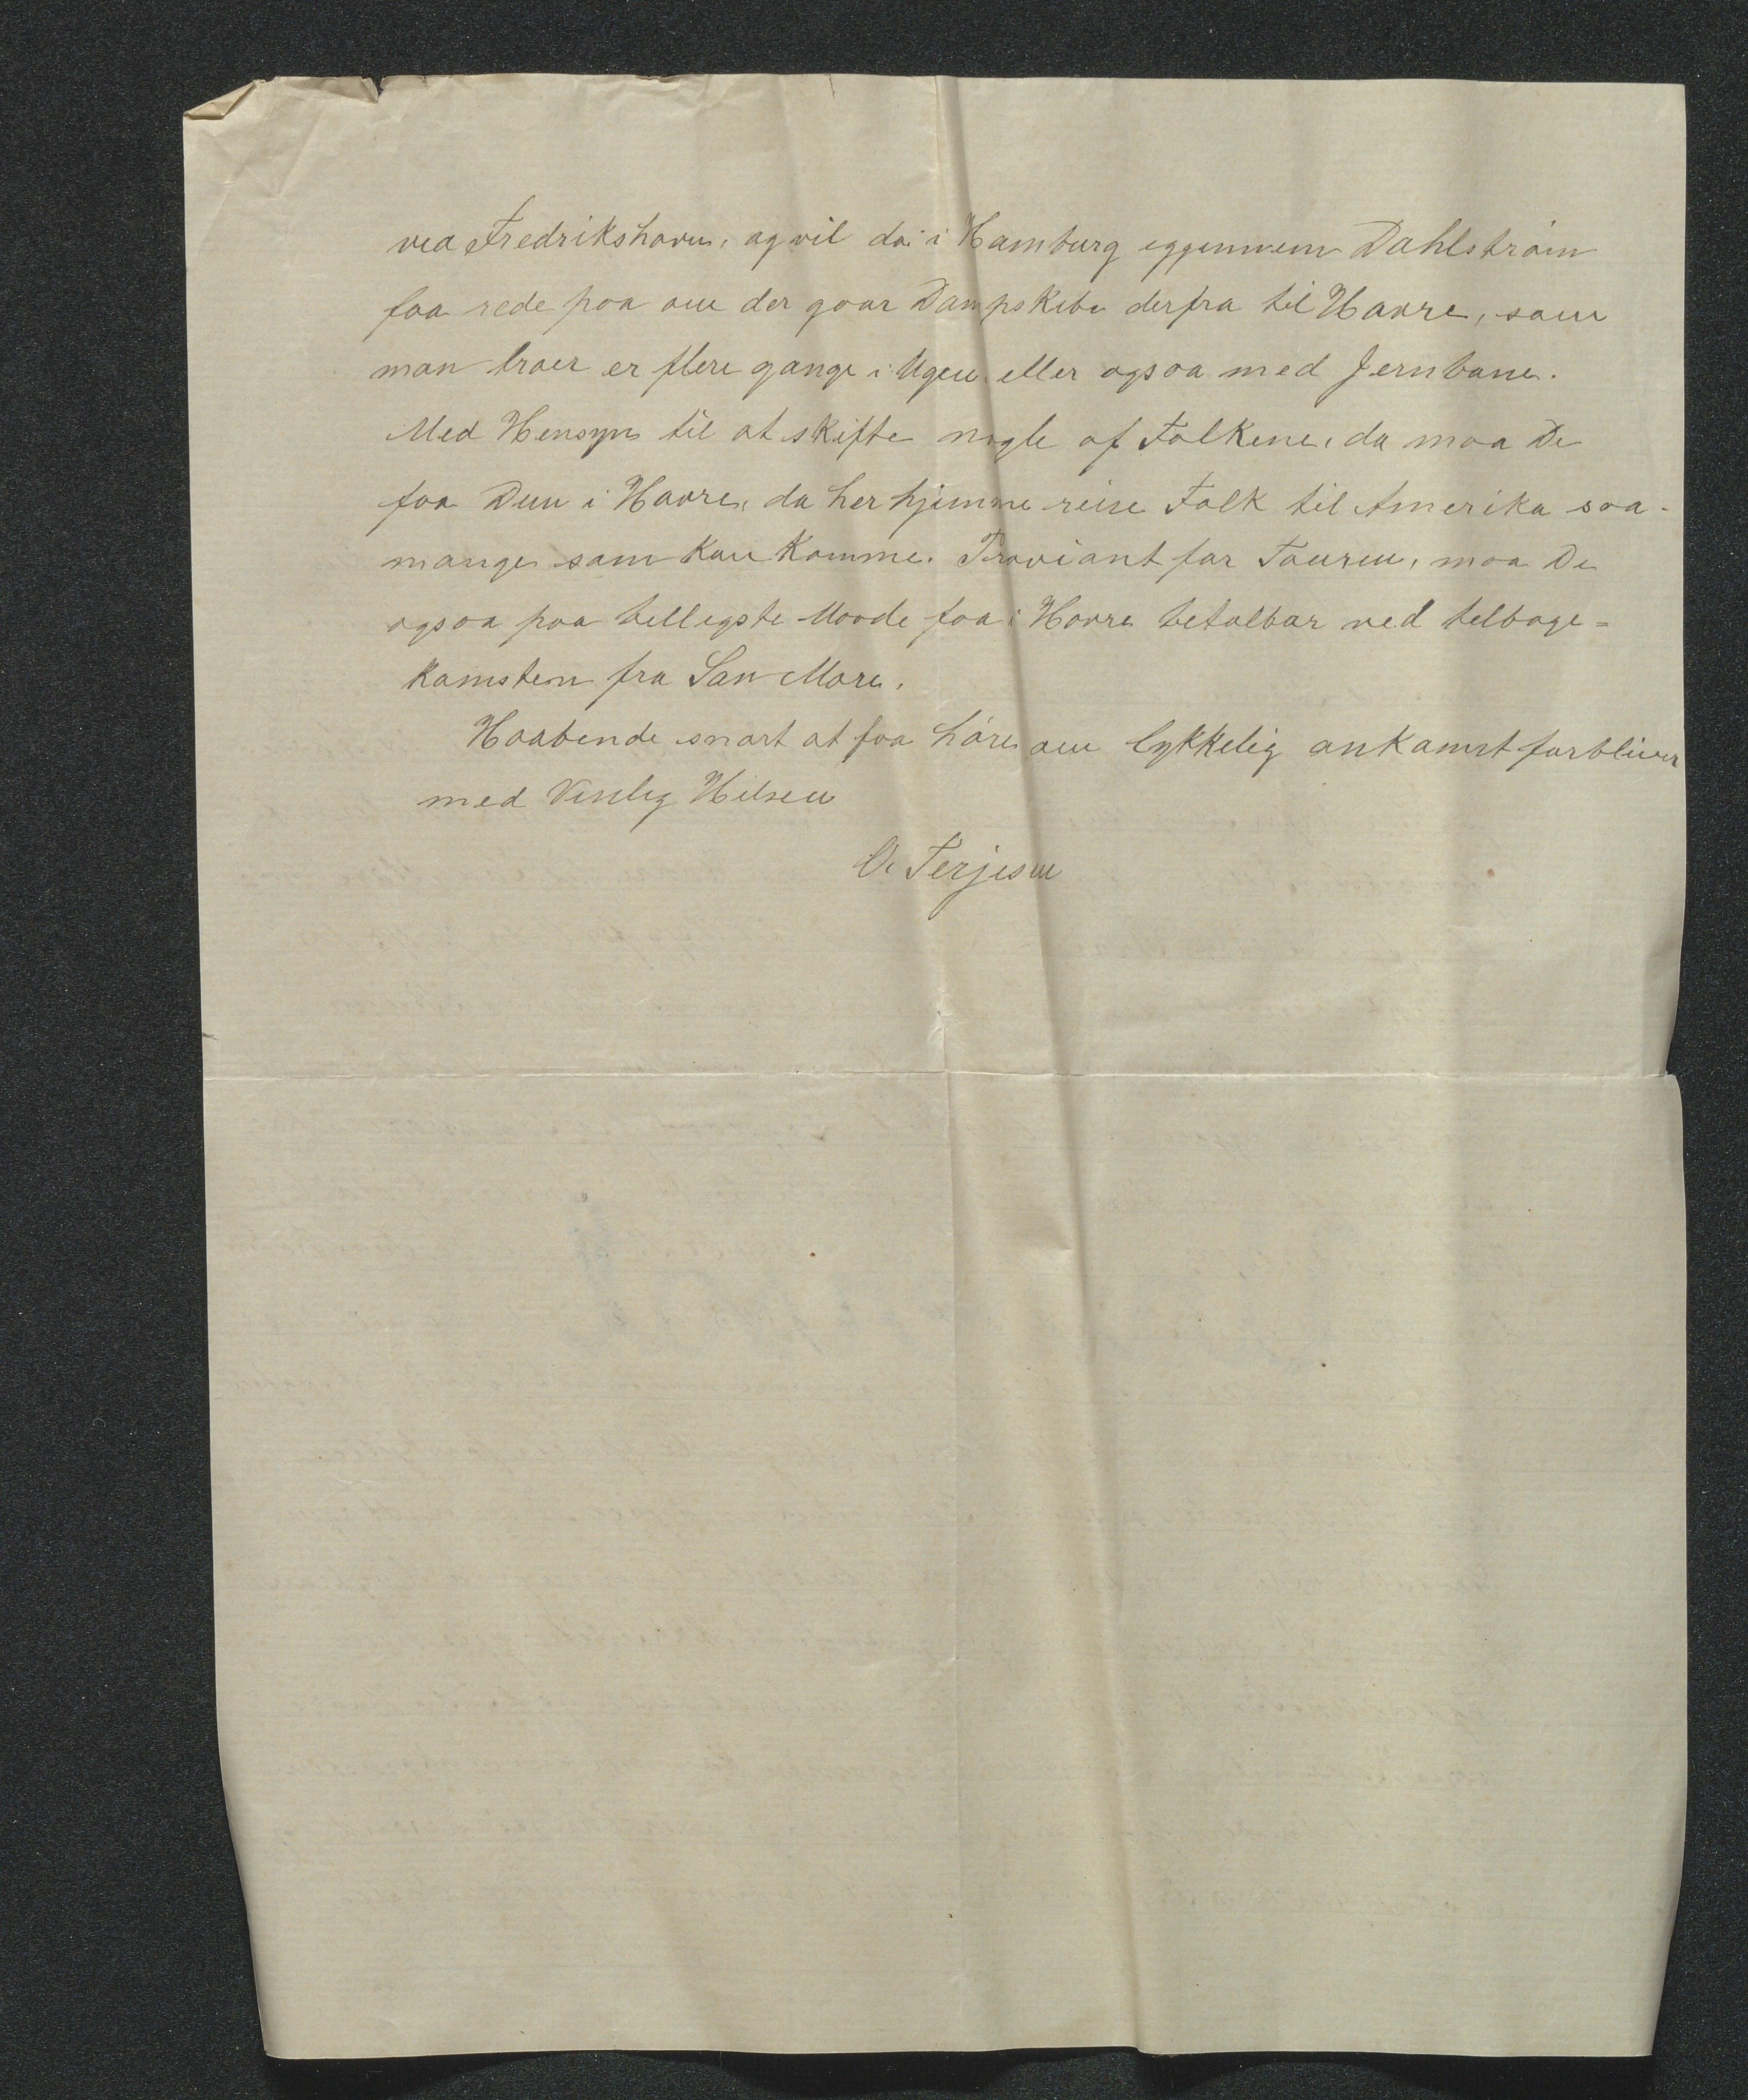 via Fredrikshavn, og vil da i Hamburg iggjennem Dahlström
faa rede paa om der gaar Dampskibe derfra til Havre, som
man troer er flere gange i Ugen eller ogsaa med Jernbane.
Med Hensyn til at skifte nogle af Folkene, da maa De
faa Dem i Havre, da her hjemme reise Folk til Amerika saa-
mange som kan komme. Proviant for Touren, maa De
ogsaa paa billigste Maade faa i Havre betalbar ved tilbage=
komsten fra San Marc.
Haabende snart at faa höre om lykkelig ankomst forbliver
med Venlig Hilsen
O. Terjesen